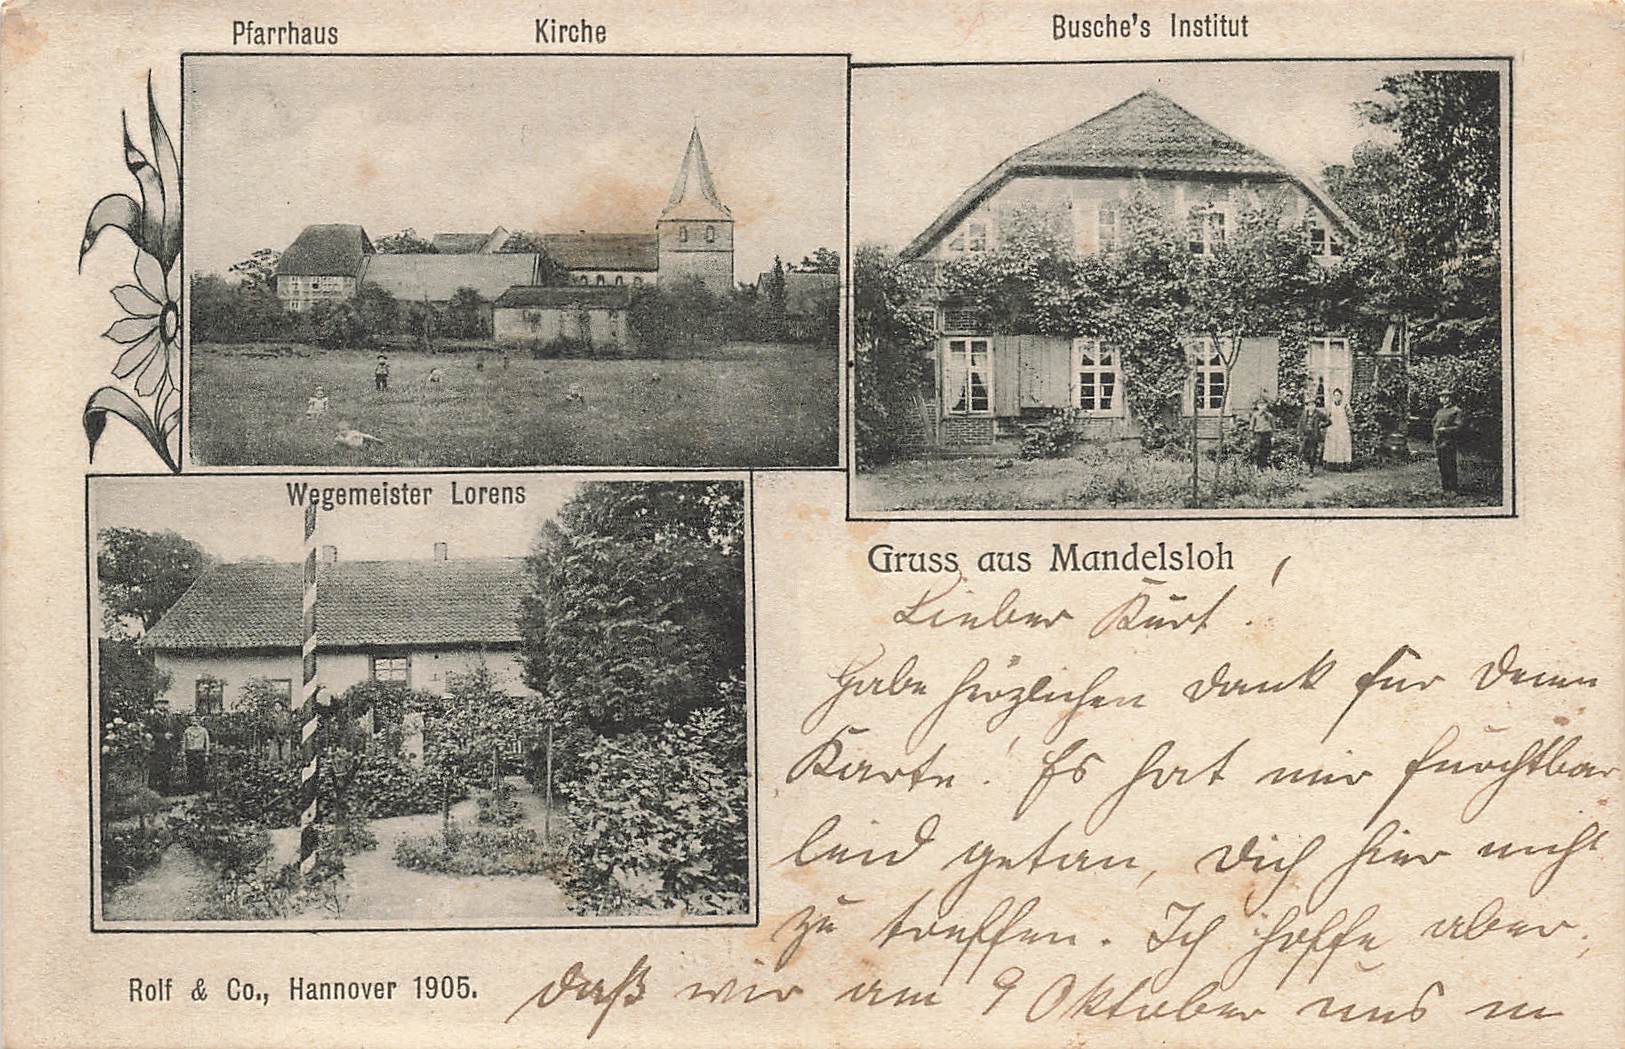 Pfarrhaus Kirche Busche's Institut
Wegemeister Lorens
Gruss aus Mandelsloh
Lieber Kurt!
Habe herzlichen Dank für Deine
Karte! Es hat mir furchtbar
leid getan, Dich hier nicht
zu treffen. Ich hoffe aber,
daß wir am 9 Oktober uns in
Rolf & Co., Hannover 1905.